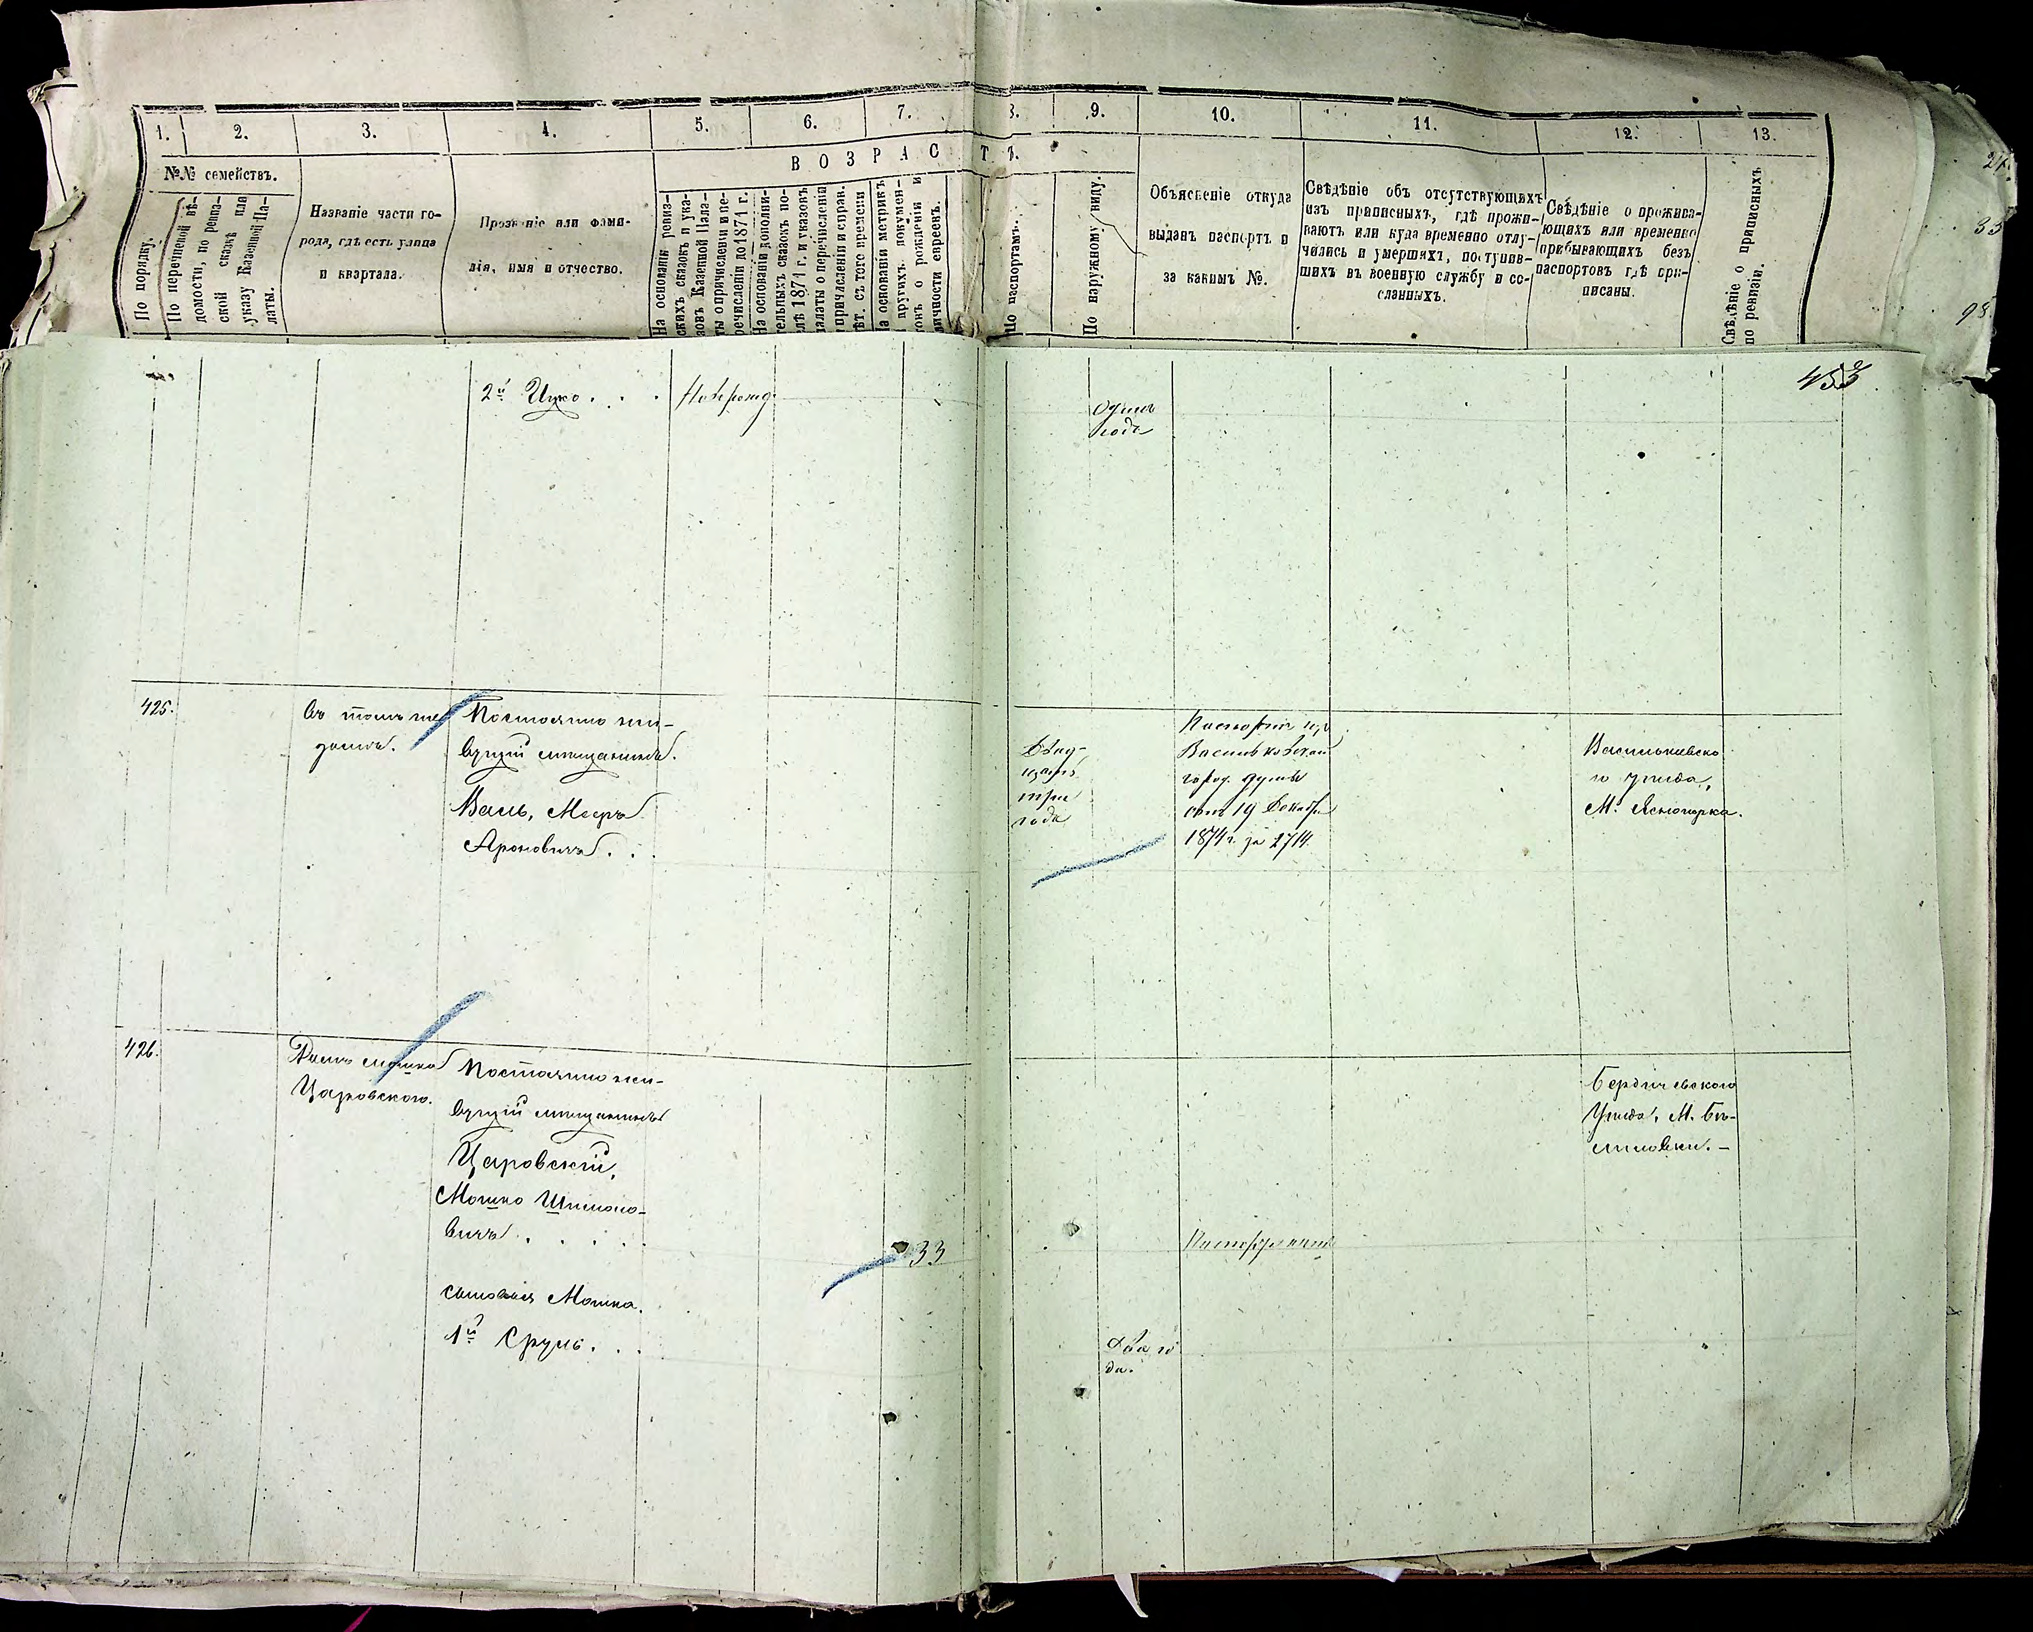 1. 2. 3. 4. 5. 6. 7. 8. 9. 10. 11. 12. 13.
ВОЗРАСТЪ.
№№ семействъ.
По порядку.
По перечневой вѣ-
домости, по ревиз-
ской сказкѣ или
указу Казенной Па-
латы.
Названіе части го-
рода, гдѣ есть улица
и квартала.
Прозваніе или фами-
лія, имя и отчество.
На основаніи ревиз-
скихъ сказокъ и ука-
зовъ Казенной Пала-
ты о причисленіи и пе-
речисленіи до 1871 г.
На основаніи дополни-
тельныхъ сказокъ по-
слѣ 1871 г. и указовъ
палаты о перечисленіи
и причисленіи и справ.
лѣт. съ того времени
На основаніи метрикъ
и другихъ докумен-
товъ о рожденіи и
личности евреевъ.
По паспортамъ.
По наружному виду.
Объясненіе откуда
выданъ паспортъ и
за какимъ №.
Свѣдѣніе объ отсутствующихъ
изъ приписныхъ, гдѣ прожи-
ваютъ или куда временно отлу-
чились и умершихъ, поступив-
шихъ въ военную службу и со-
сланныхъ.
Свѣдѣніе о прожива-
ющихъ или временно
прибывающихъ безъ
паспортовъ гдѣ при-
писаны.
Свѣдѣніе о приписныхъ
по ревизіи.
453
2й Ицко . . .
Новорожд.
Одинъ
годъ
425.
Въ томъ же
домѣ.
Постоянно жи-
вущій мѣщанинъ.
Валь, Мееръ
Ароновичъ . . .
Двад-
цать
три
года
Паспортъ изъ
Васильковской
город. думы
отъ 19 Декабря
1874 г. за 2714.
Васильковско
го уѣзда,
М. Ясногорка.
426.
Домъ Мошка
Царовского.
Постоянно жи-
вущій мѣщанинъ
Царовскій,
Мошко Шимоно-
вичъ . . . . .
33
Бердичевского
Уѣзда, М. Бѣ-
лиловки. –
сыновья Мошка.
1й Сруль. . .
Два го
да.